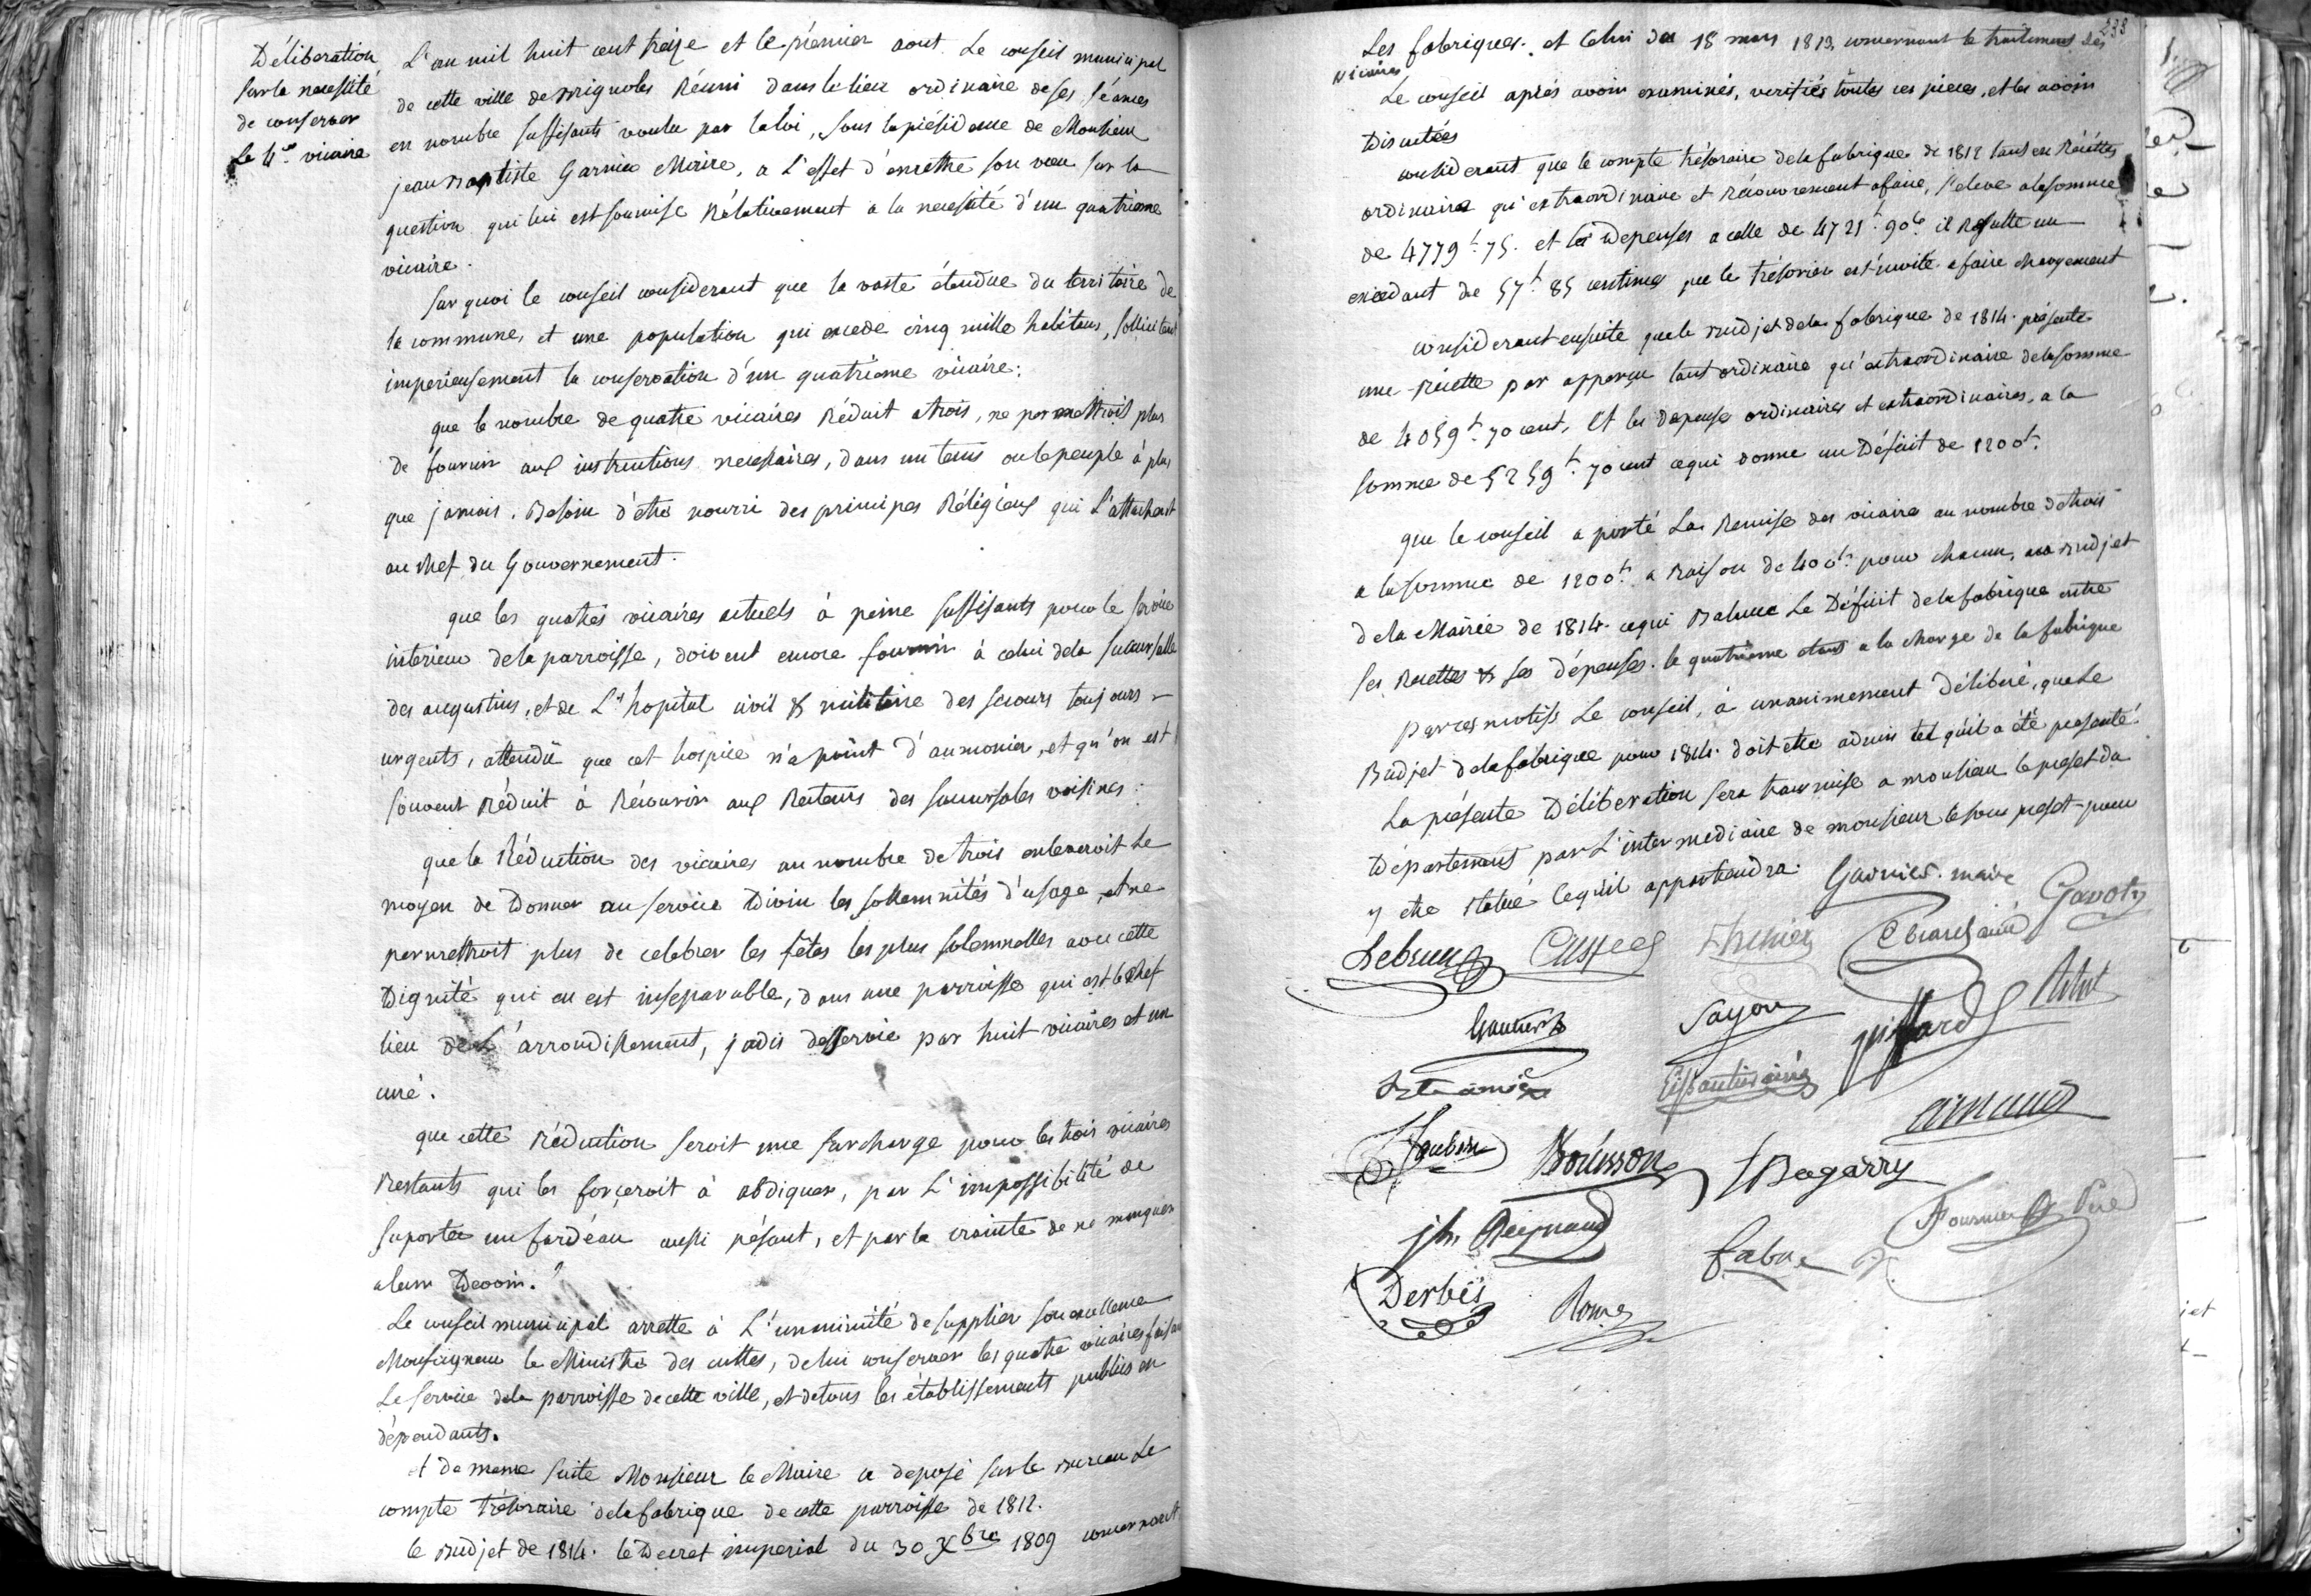 Déliberation
sur la necessité
de conserver
le 4.e vicaire
L'an mil huit cent treize et le premier aout. Le conseil municipal
de cette ville de Brignoles Réuni dans le lieu ordinaire de ses séances
en nombre suffisants voulu par la loi, sous la présidence de Monsieur
jean Baptiste Garnier Maire, a L'effet d'emettre son vœu sur la
question qui lui est soumise Rélativement a la necessité d'un quatrieme
vicaire.
sur quoi le conseil considerant que la vaste étendue du territoire de
la commune, et une population qui excede cinq mille habitans, sollicitent
imperieusement la conservation d'un quatriéme vicaire;
que le nombre de quatre vicaires Réduit a trois, ne permettroit plus
de fournir aux instructions necessaires, dans un tems ou le peuple à plus
que jamais. Besoin d'etre nourri des principes Réligieux qui L'attachent
au chef du Gouvernement.
que les quatre vicaires actuels à peine suffisants pour le service
interieur de la parroisse, doivent encore fournir à celui de la succursalle
des augustins, et de L'hopital civil & militaire des secours toujours
urgents, attendu que cet hospice n'a point d'aumonier, et qu'on est
souvent Réduit à Récourir aux Recteurs des succursales voisines:
que la Réduction des vicaires au nombre de trois enleveroit Le
moyen de Donner au service Divin les sollemnités d'usage, et ne
permettroit plus de celebrer les fêtes les plus solemnelles avec cette
Dignité qui en est inseparable, dans une parroisse qui est le chef
lieu de L'arrondissement, jadis desservie par huit vicaires et un
curé.
que cette réduction seroit une surcharge pour les trois vicaires
Restants qui les forçeroit à abdiquer, par L'impossibilité de
suporter un fardéau aussi pésant, et par la crainte de ne manquer
a leur Devoir.
Le conseil municipal arrette à L'unnimité de supplier son excellence
Monseigneur le Ministre des cultes, de lui conserver les quatre vicaires faisant
Le service de la parroisse de cette ville, et de tous les établissements publics en
dépendants.
et de meme suite Monsieur le Maire a deposé sur le Bureau Le
compte trésoraire de la fabrique de cette parroisse de 1812.
le Budjet de 1814. le Decret imperial du 30 Xbre 1809 concernant
233
Les fabriques. et celui du 18 mars 1813, concernant le traitement des
vicaires
Le conseil aprés avoir examinés, verifiés toutes ces pieces, et les avoir
Discutées
considerant que le compte trésoraire de la fabrique de 1812 tant en Récettes
ordinaires qu'extraordinaire et récouvrement afaire, s'eleve a la somme
de 4779 f. 75. et les Depenses a celle de 4721 f. 90 c. il Resulte un
excedant de 57 f. 85 centimes que le trésorier est invité a faire chargement
considerant ensuite que le Budjet de la fabrique de 1814. présente
une récette par apperçu tant ordinaire qu'extraordinaire de la somme
de 4059 f. 70 cent, Et les depenses ordinaires et extraordinaires, a la
somme de 5259 f. 70 cent ce qui donne un Déficit de 1200 f.
que le conseil a porté La Remise des vicaires au nombre de trois
a la somme de 1200 f. a Raison de 400 f. pour chacun, au Budjet
de la Mairie de 1814. ce qui Balance Le Déficit de la fabrique entre
ses Recettes & ses dépenses. le quatrieme etant a la charge de la fabrique
par ces motifs Le conseil, à unanimement Déliberé, que Le
Budjet de la fabrique pour 1814. doit etre admis tel qu'il a été presenté.
La présente Déliberation sera transmise a monsieur le prefet du
Département par L'intermediaire de monsieur le sous prefet pour
y etre statué ce qu'il appartiendra. Garnier. maire
Gavoty
Lebrun
Gautier
Sayou
Jaubert
Bouisson
Bagarry
arnaud
jh. Reynaud
Fabre
Fournier
Derbés